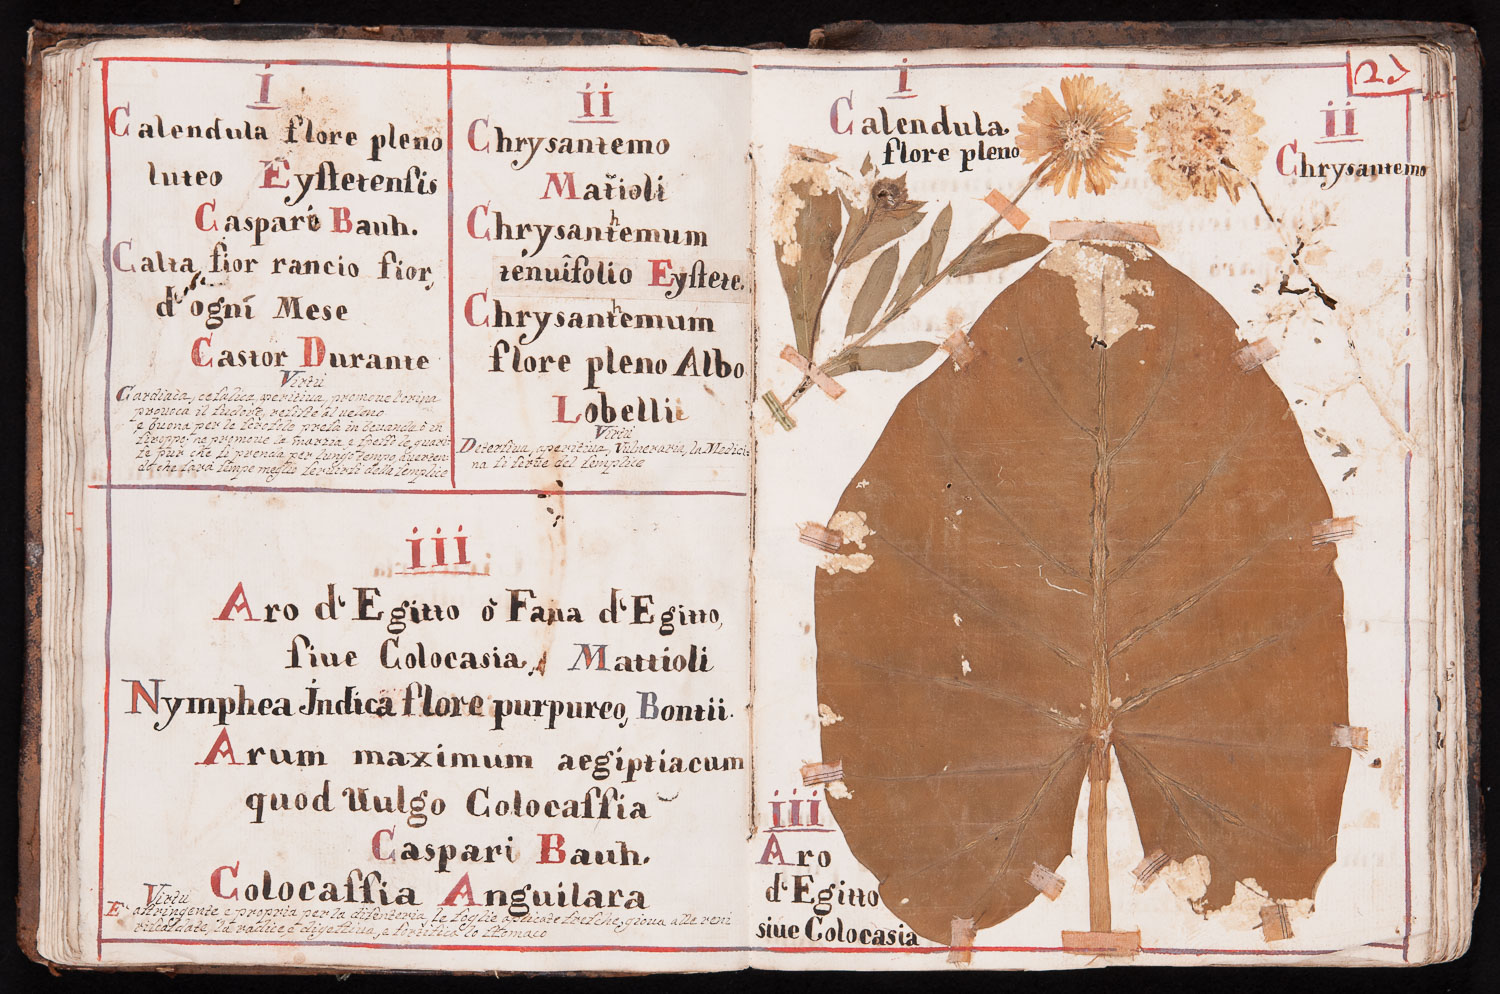 i
Calendula flore pleno
luteo Eystetensis
Caspari Bauh.
Calta fior rancio fior,
d'ogni Mese
Castor Durante
Virtù
Cardiaca, cefalica, aperitiva, promove l'orina
provoca il sudore, resiste al veleno
e buona per le scrofole presa in bevanda ò in
siroppo
se pur che si prenda per lungo tempo, averten-
do che sarà sempre meglio servirsi della semplice
ii
Chrysantemo
Matioli
Chrysanthemum
tenuifolio Eystete.
Chrysanthemum
flore pleno Albo
Lobellii
Virtù
Detersiva, aperitiva, Vulneraria, la Medici-
na si serve del semplice
iii
Aro d'Egitto ò Fava d'Egitto,
siue Colocasia, Mattioli
Nymphea Jndica flore purpureo, Bontii.
Arum maximum aegiptiacum
quod Uulgo Colocassia
Caspari Bauh.
Colocassia Anguilara
Virtù
E' astringente e propria per la disenteria, le foglie applicate fresche, giova alle reni
riscaldate, la radice è digestiva, e fortifica lo stomaco
i
Calendula
flore pleno
ii
Chrysantemo
iii
Aro
d'Egitto
siue Colocasia